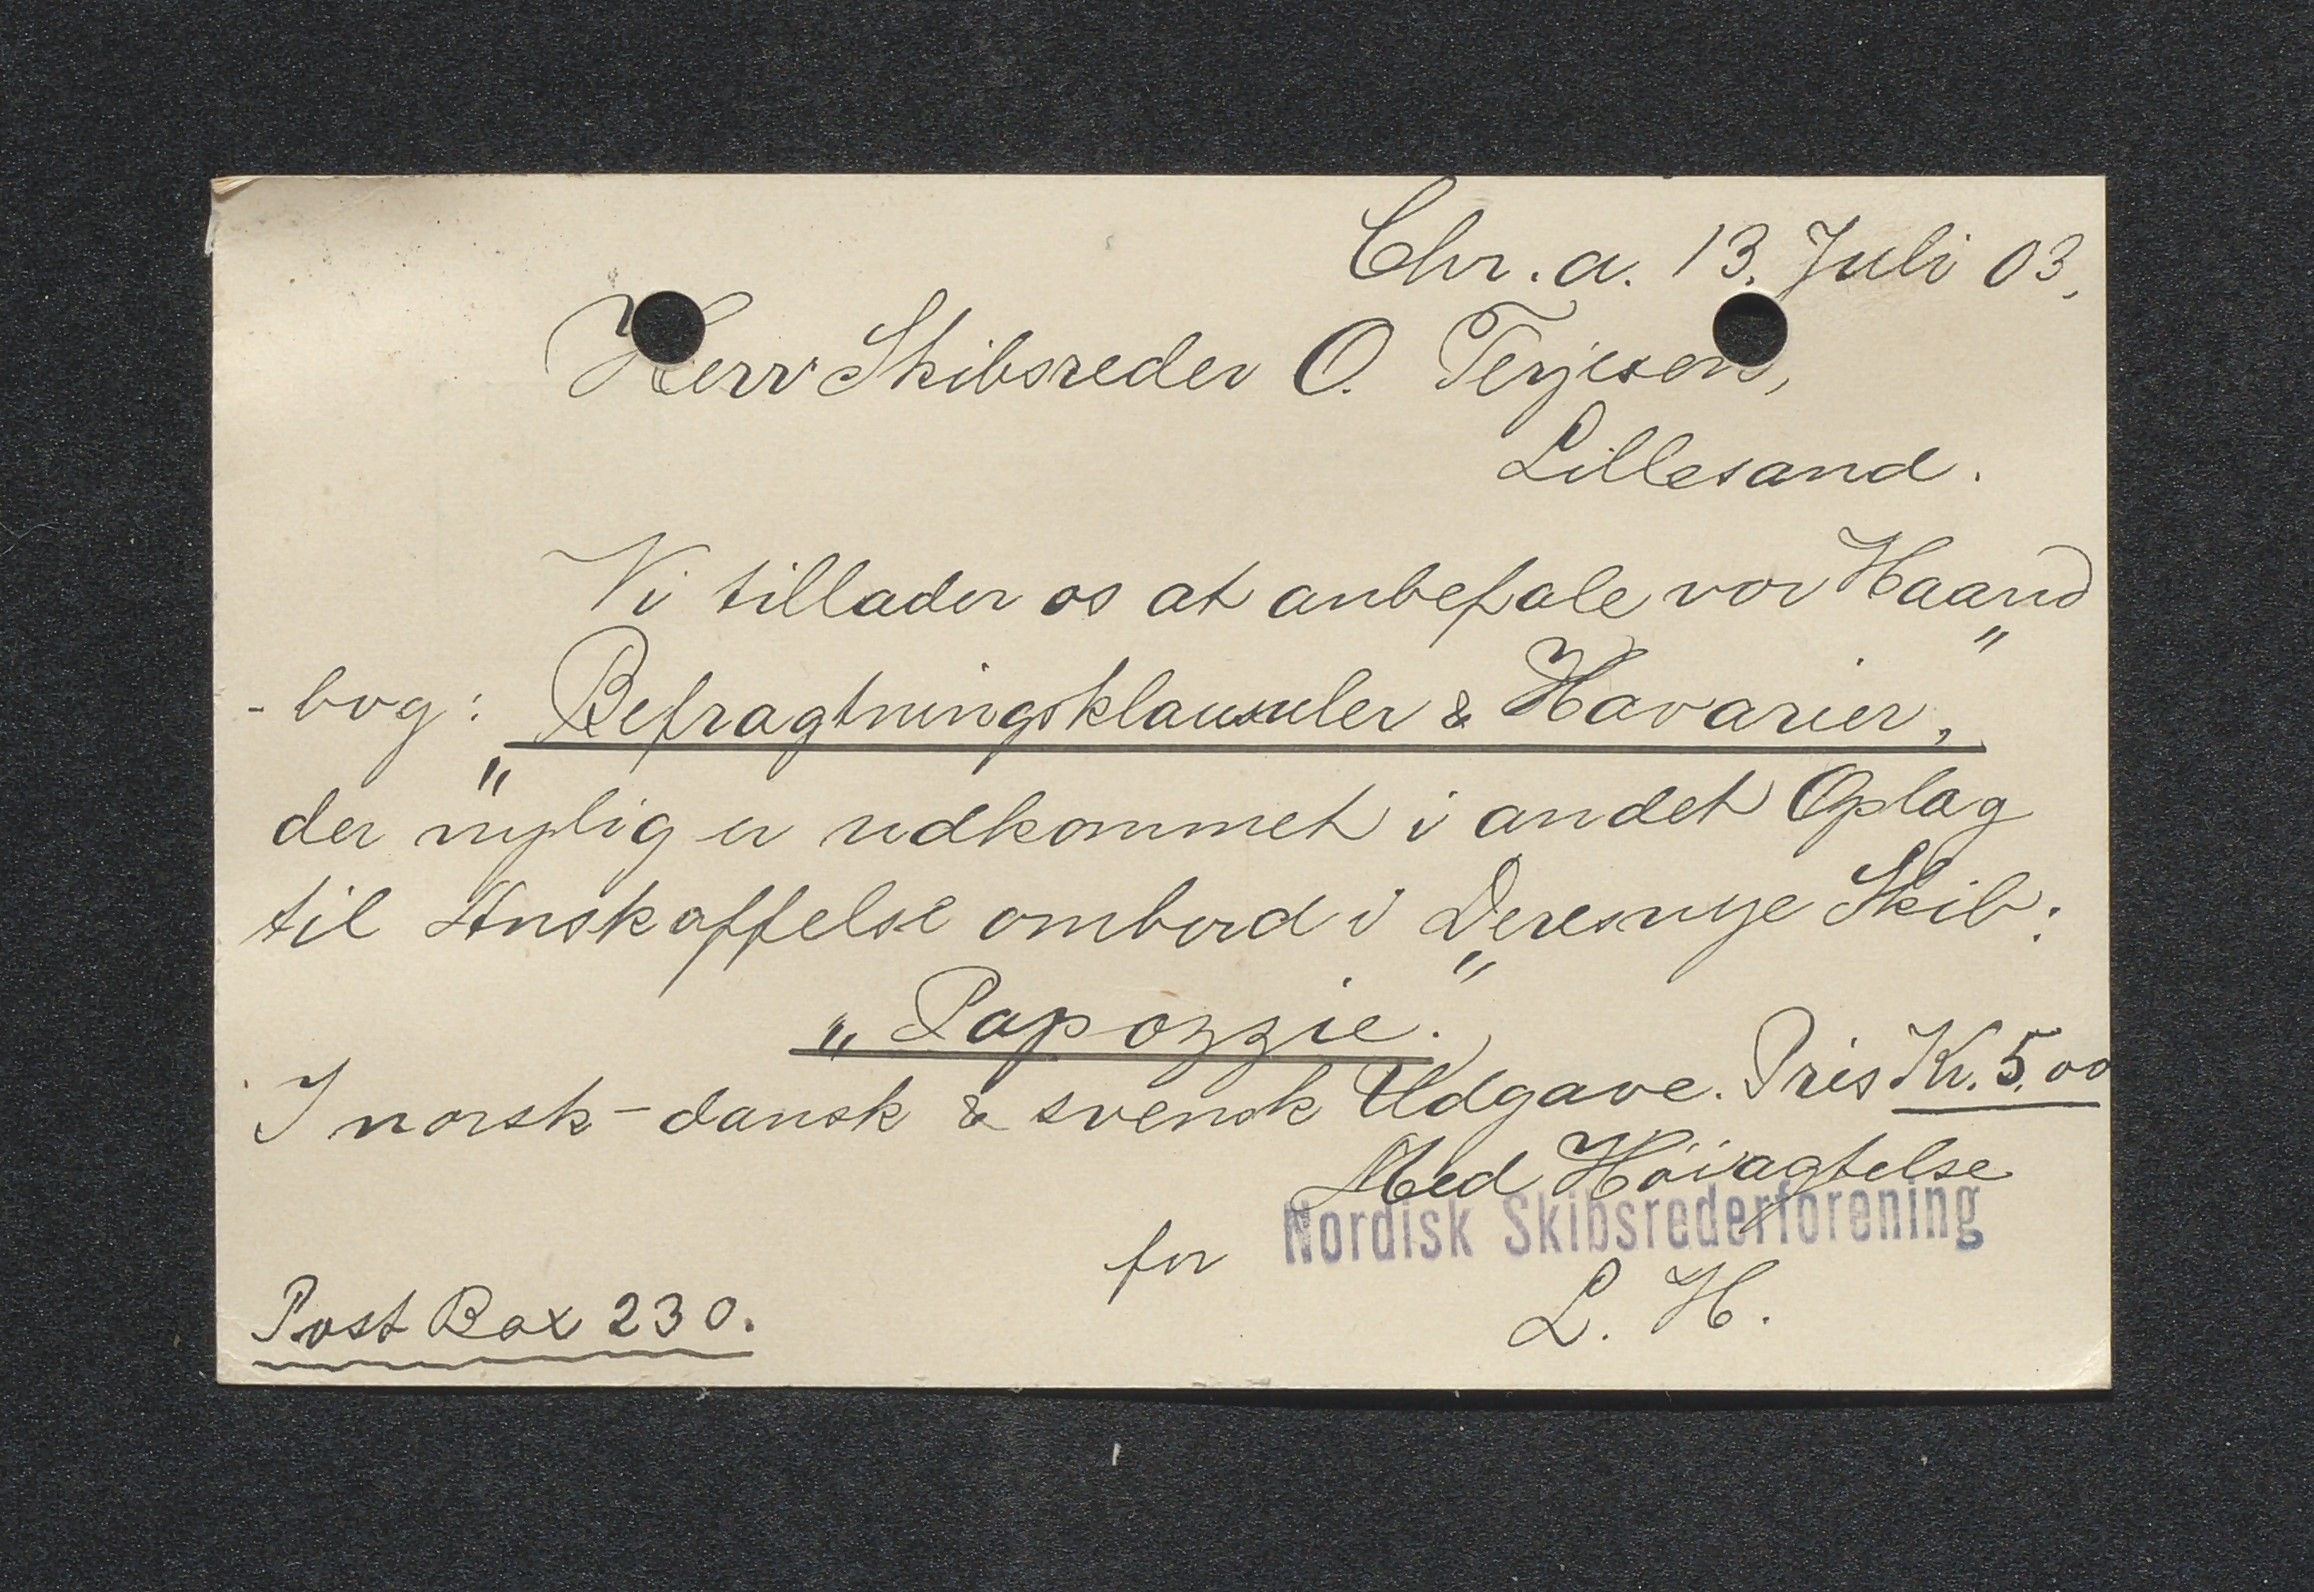 Chr.a. 13. Juli 03.
Herr Skibsreder O. Terjesen,
Lillesand.
Vi tillader os at anbefale vor Haand
-bog: „Befragtningsklausuler & Havarier,"
der nylig er udkommet i andet Oplag
til Anskaffelse ombord i Deres nye Skib:
„Papozzie."
I norsk-dansk & svensk Udgave. Pris Kr. 5.00
Med Høiagtelse
for Nordisk Skibsrederforening
L. H.
Post Box 230.